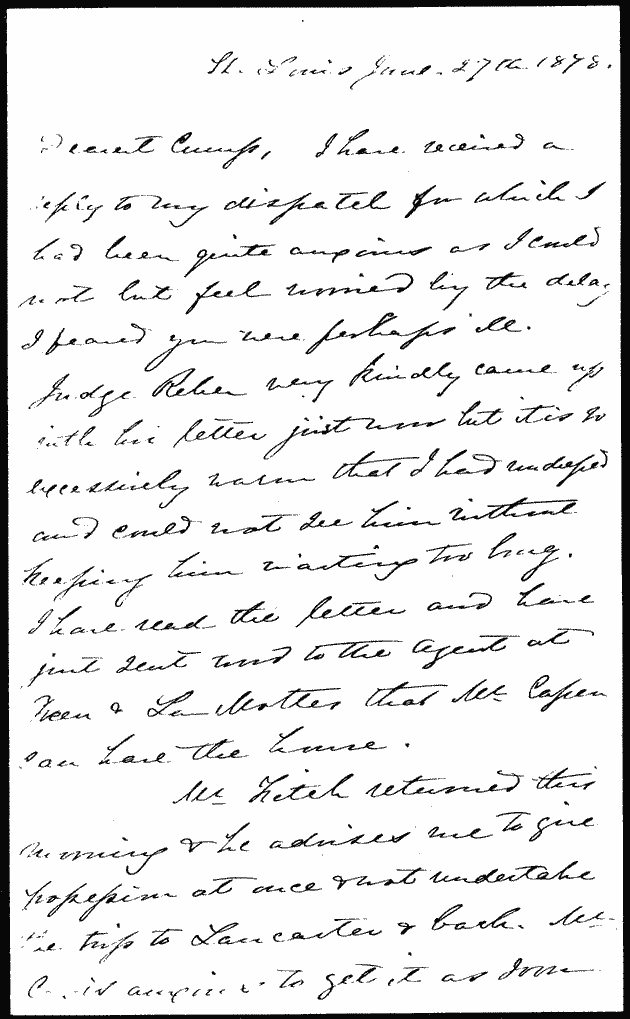 St. Louis June. 27th 1878.
Dearest Cump, I have received a
reply to my dispatch for which I
had been quite anxious as I could
not but feel worried by the delay
I feared you were perhaps ill.
Judge Reber very kindly came up
with his letter just now but it is so
excessively warm that I had undressed
and could not see him without
keeping him waiting too long.
I have read the letter and have
just sent word to the Agent at
& La Mottes that Mr. Capen
can have the house.
Mr. Fitch returned this
morning & he advises me to give
possession at once & not undertake
the trip to Lancaster & back. Mr.
C. is anxious to get it as soon